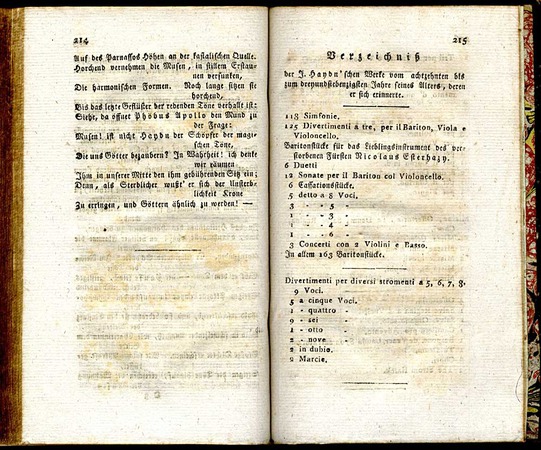 214
Auf des Parnassos Höhen an der kastalischen Quelle.
Horchend vernehmen die Musen, in stillem Erstau-
nen versunken,
Die harmonischen Formen. Noch lange sitzen sie
horchend,
Bis das letze Geflüster der redenden Töne verhallt ist:
Siehe, da öffnet Phöbus Apollo den Mund zu
der Frage:
Musen! ist nicht Haydn der Schöpfer der magi-
schen Töne,
Die uns Götter bezaubern? In Wahrheit! ich denke
wir räumen
Ihm in unserer Mitte den ihm gebührenden Sitz ein;
Denn, als Sterblicher wußt' er sich der Unsterb-
lichkeit Krone
Zu erringen, und Göttern ähnlich zu werden! —
215
Verzeichniß
der J. Haydn'schen Werke vom achtzehnten bis
zum dreyundsiebenzigsten Jahre seines Alters, deren
er sich erinnerte.
118 Simfonie.
125 Divertimenti a tre, per il Bariton, Viola e
Violoncello.
Baritonstücke für das Lieblingsinstrument des ver-
storbenen Fürsten Nicolaus Esterhazy.
6 Duetti
12 Sonate per il Bariton col Violoncello.
6 Cassationsstücke.
5 detto a 8 Voci.
3 - - 5 -
1 - - 3 -
1 - - 4 -
1 - - 6 -
3 Concerti con 2 Violini e Basso.
In allem 163 Baritonstücke.
Divertimenti per diversi stromenti a 5, 6, 7, 8.
9 Voci.
5 a cinque Voci.
1 - quattro -
9 - sei -
1 - otto -
2 - nove -
2 in dubio.
2 Marcie.